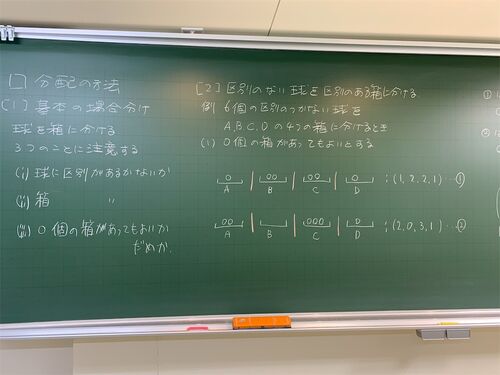 □ 分配の方法
[1] 基本の場合分け
球を箱に分ける
3つのことに注意する
(i) 球に区別があるかないか
(ii) 箱 〃
(iii) 0個の箱があってもよいか
だめか.
[2] 区別のない球を区別のある箱に分ける
例 6個の区別のつかない球を
A,B,C,Dの4つの箱に分けるとき
(1) 0個の箱があってもよいとする
○ | ○○ | ○○ | ○ ; (1, 2, 2, 1) … ①
A B C D
○○ | | ○○○ | ○ ; (2, 0, 3, 1) … ②
A B C D